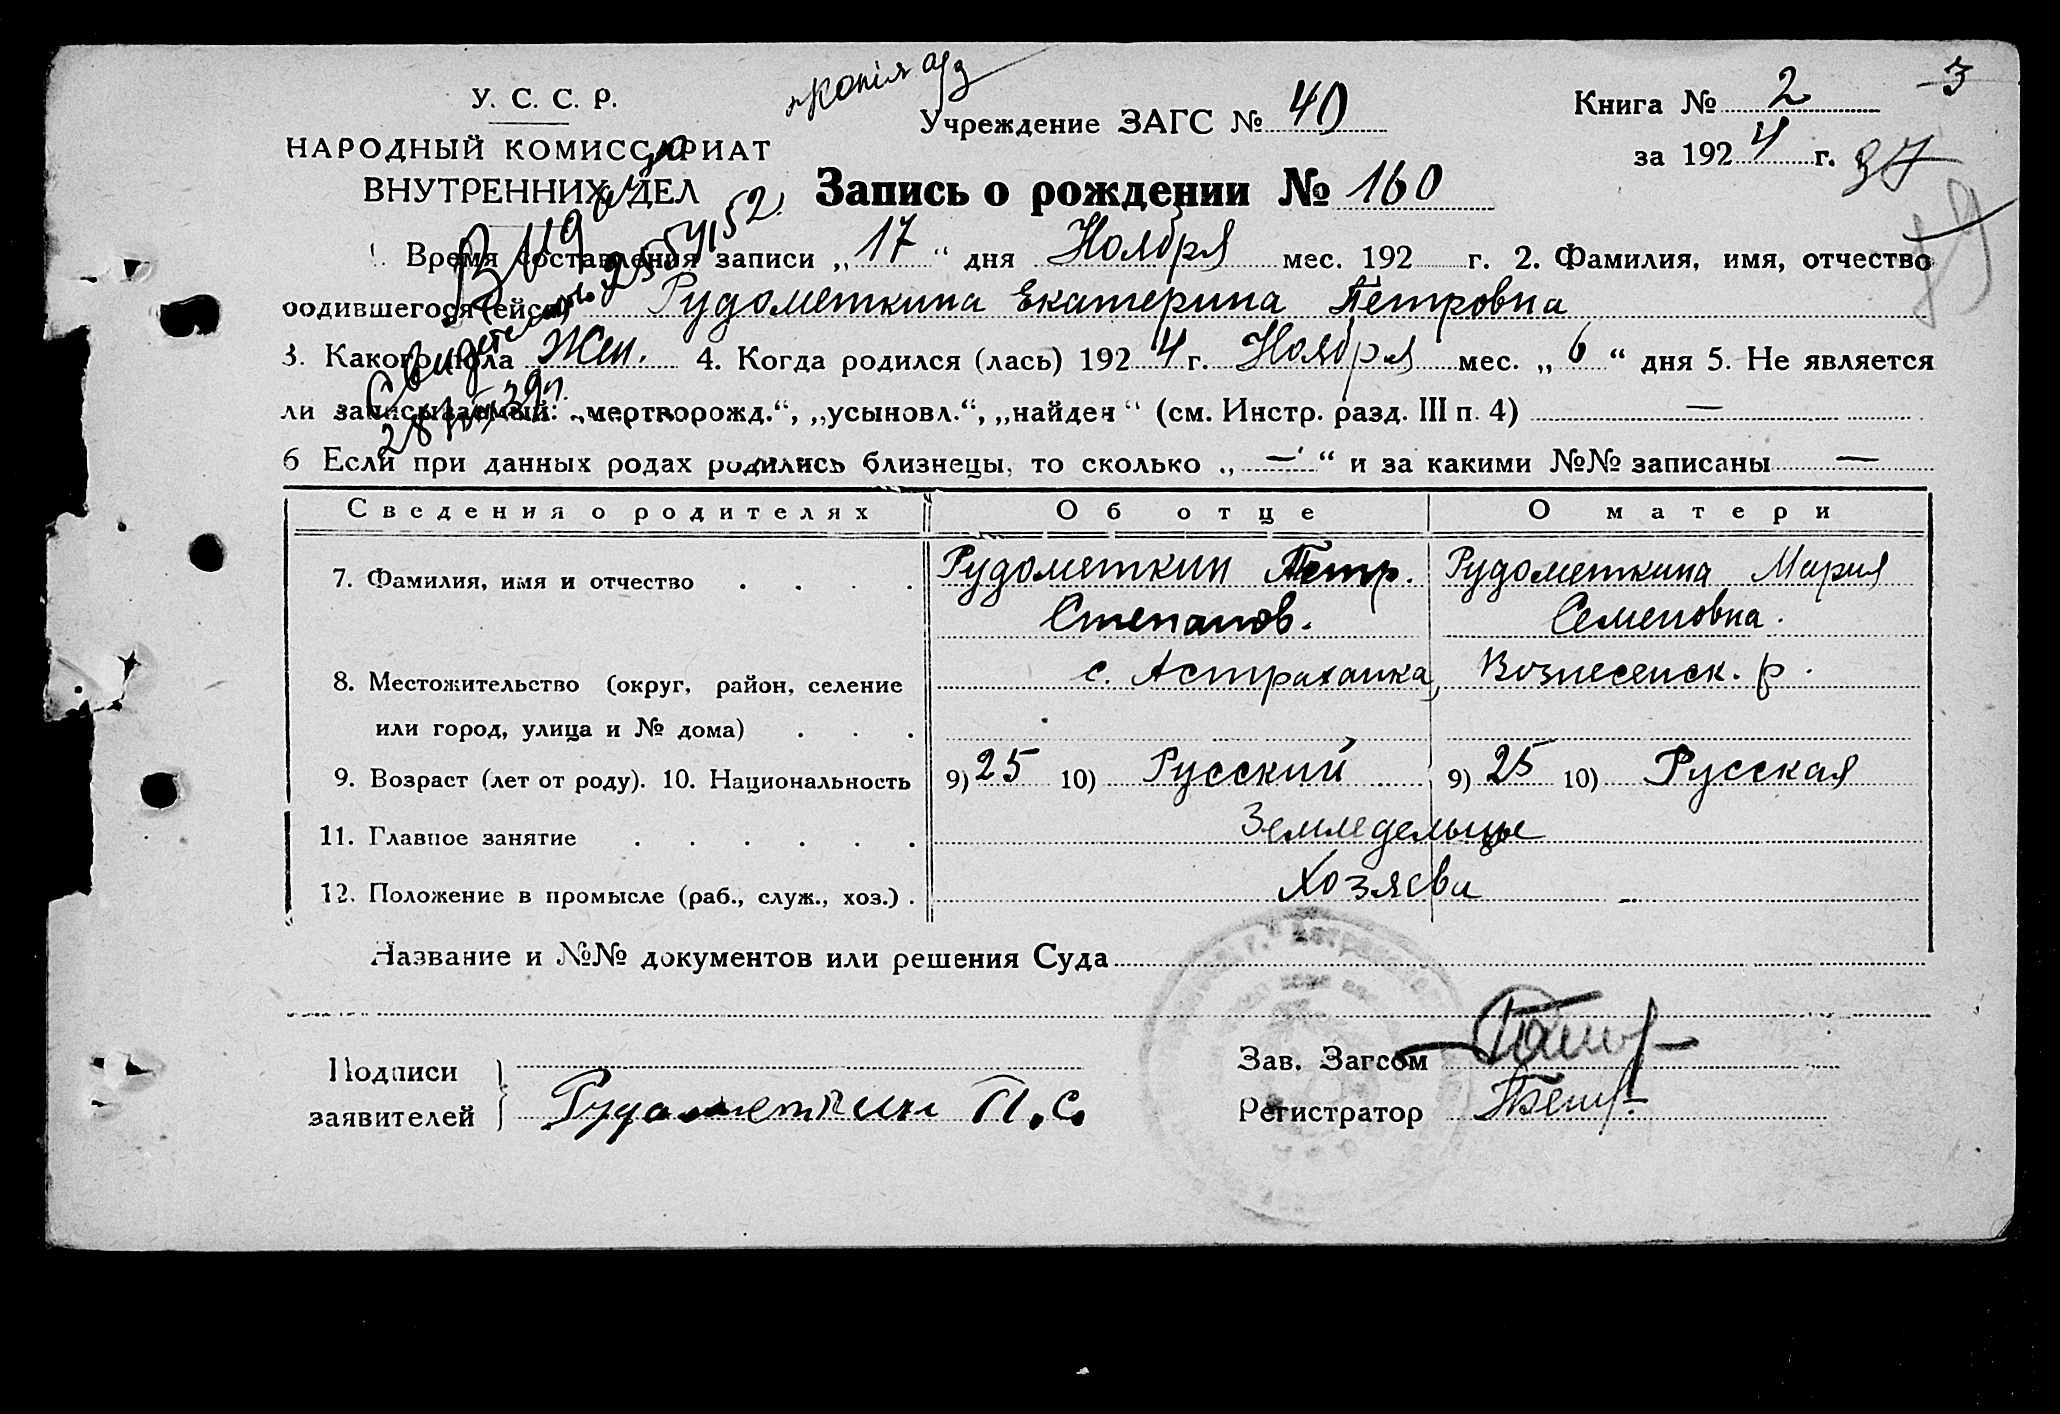 копія
У. С. С. Р.
Учреждение ЗАГС № 40
Книга № 2
3
НАРОДНЫЙ КОМИССАРИАТ
за 1924 г.
37
ВНУТРЕННИХ ДЕЛ
Запись о рождении № 160
Видано
Свидетельство
1. Время составления записи „17“ дня Ноября мес. 192 г. 2. Фамилия, имя, отчество
родившегося (ейся) Рудометкина Екатерина Петровна
3. Какого пола Жен. 4. Когда родился (лась) 1924 г. Ноября мес. „6“ дня 5. Не является
ли записываемый: „мертворожд.“, „усыновл.“, „найден“ (см. Инстр. разд. III п. 4) —
6 Если при данных родах родились близнецы, то сколько „—“ и за какими №№ записаны —
Сведения о родителях Об отце О матери
7. Фамилия, имя и отчество Рудометкин Петр. Рудометкина Мария
Степанов. Семеновна.
8. Местожительство (округ, район, селение с. Астраханка, Вознесенск. р.
или город, улица и № дома)
9. Возраст (лет от роду). 10. Национальность 9) 25 10) Русский 9) 25 10) Русская
11. Главное занятие Земледельцы
12. Положение в промысле (раб., служ., хоз.) Хозяева
Название и №№ документов или решения Суда
Подписи
заявителей
Рудометкин П. С.
Зав. Загсом
Регистратор